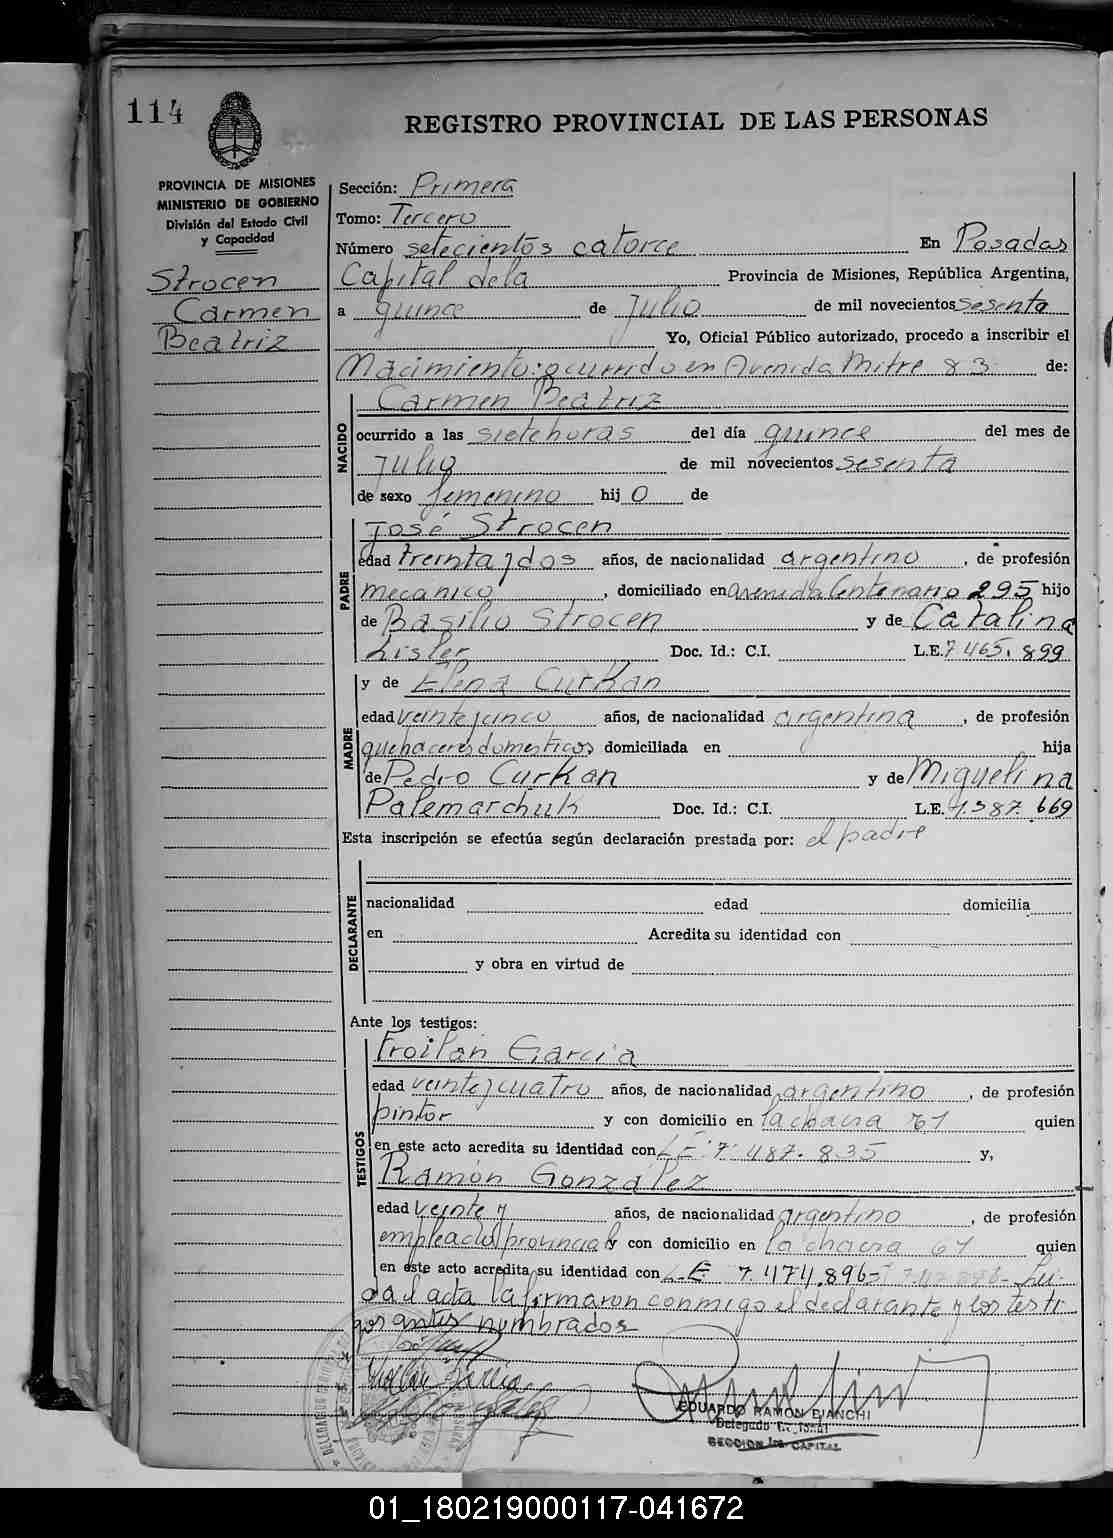 114
REGISTRO PROVINCIAL DE LAS PERSONAS
PROVINCIA DE MISIONES
MINISTERIO DE GOBIERNO
División del Estado Civil
y Capacidad
Strocen
Carmen
Beatriz
Sección: Primera
Tomo: Tercero
Número setecientos catorce En Posadas
Capital de la Provincia de Misiones, República Argentina,
a quince de Julio de mil novecientos sesenta
Yo, Oficial Público autorizado, procedo a inscribir el
Nacimiento: ocurrido en Avenida Mitre 83 de:
NACIDO
Carmen Beatriz
ocurrido a las siete horas del día quince del mes de
Julio de mil novecientos sesenta
de sexo femenino hij o de
PADRE
José Strocen
edad treinta y dos años, de nacionalidad argentino, de profesión
mecanico, domiciliado en avenida Centenario 295 hijo
de Basilio Strocen y de Catalina
Lisler Doc. Id.: C.I. L.E. 7465.899
MADRE
y de Elena Curkan
edad veinte y cinco años, de nacionalidad argentina, de profesión
quehaceres domesticos domiciliada en hija
de Pedro Curkan y de Miguelina
Palemarchuk Doc. Id.: C.I. L.E. 669
Esta inscripción se efectúa según declaración prestada por: el padre
DECLARANTE
nacionalidad edad domicilia
en Acredita su identidad con
y obra en virtud de
Ante los testigos:
TESTIGOS
Froilán Garcia
edad veinte y cuatro años, de nacionalidad argentino, de profesión
pintor y con domicilio en la chacra 61 quien
en este acto acredita su identidad con L.E: 7.487.835 y,
Ramón González
edad veinte y años, de nacionalidad argentino, de profesión
empleado provincial y con domicilio en la chacra 61 quien
en este acto acredita su identidad con L.E. 7.474.896- Lei
da el acta la firmaron conmigo el declarante y los testi
gos antes nombrados
Froilán Garcia
EDUARDO RAMON BIANCHI
Delegado
SECCION 1ra CAPITAL
01_180219000117-041672